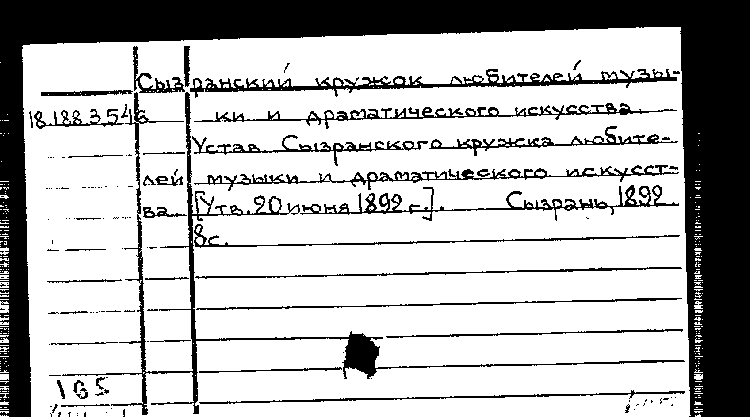 Сызранский кружок любителей музы-
18.188.3.54б ки и драматического искусства.
Устав Сызранского кружка любите-
лей музыки и драматического искусст-
ва. [Утв. 20 июня 1892 г.]. Сызрань, 1892
8с.
165